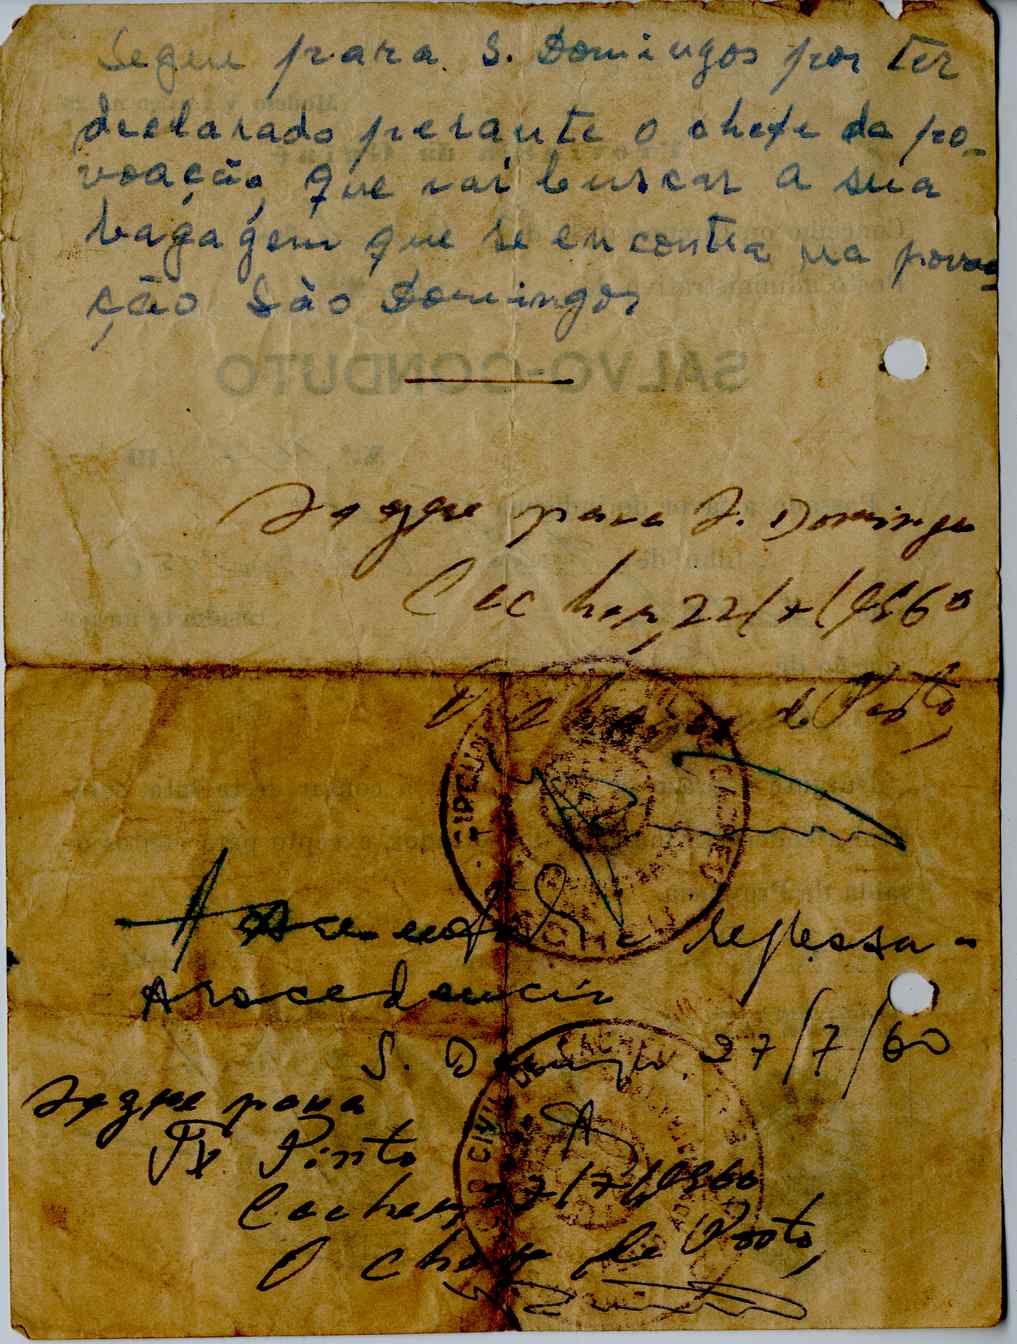 Segue para S. Domingos por ter
declarado perante o chefe da po-
voação, que vai buscar a sua
bagagem que se encontra na povoa
ção São Domingos
SALVO-CONDUTO
Segue para S. Domingos
Cacheu, 22/7/1960
O Chefe de Posto,
CACHEU
regressa -
A procedencia
S. Domingos, 27/7/60
Segue para
Tx. Pinto
Cacheu, 27/7/1960
O Chefe de Posto,